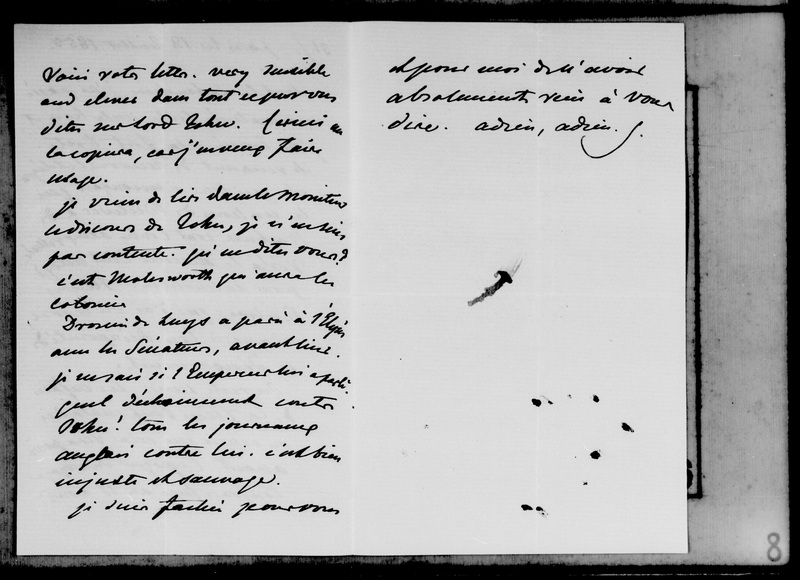 Voici votre lettre. very sensible
and clever dans tout ce que vous
dites sur Lord John.
la copiera, car j'en veux faire
usage.
je viens de lire dans le Moniteur
le discours de John, je n'en suis
pas contente. qu'en dites vous?
c'est Molesworth qui aura les
colonies
Drouin de Lhuys a paru à l'Elysée
avec les Sénateurs, avant hier.
je ne sais si l'Empereur lui a parlé.
quel déchainement contre
John! tous les journaux
anglais contre lui. c'est bien
injuste et sauvage.
je suis fachée pour vous
et pour moi de n'avoir
absolument rien à vous
dire. adieu, adieu.
8